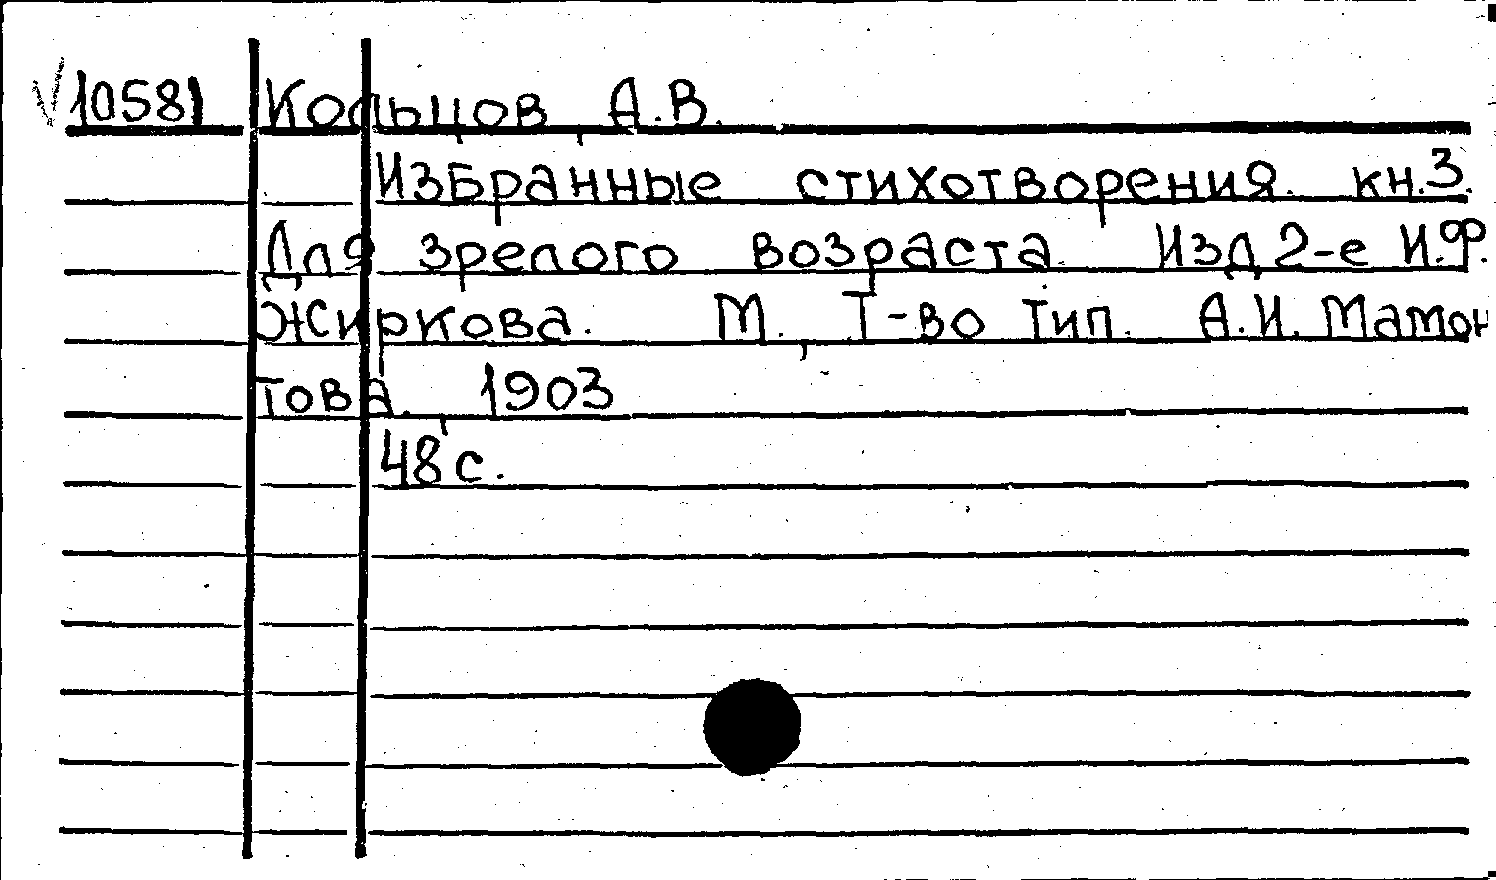 10581 Кольцов, А.В.
Избранные стихотворения. кн.3.
Для зрелого возраста. Изд 2-е И.Ф.
Жиркова. М., Т-во тип. А.И. Мамон
това, 1903
48 с.